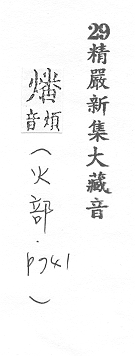 29精嚴新集大藏音
燔
音煩
(火部.p741)